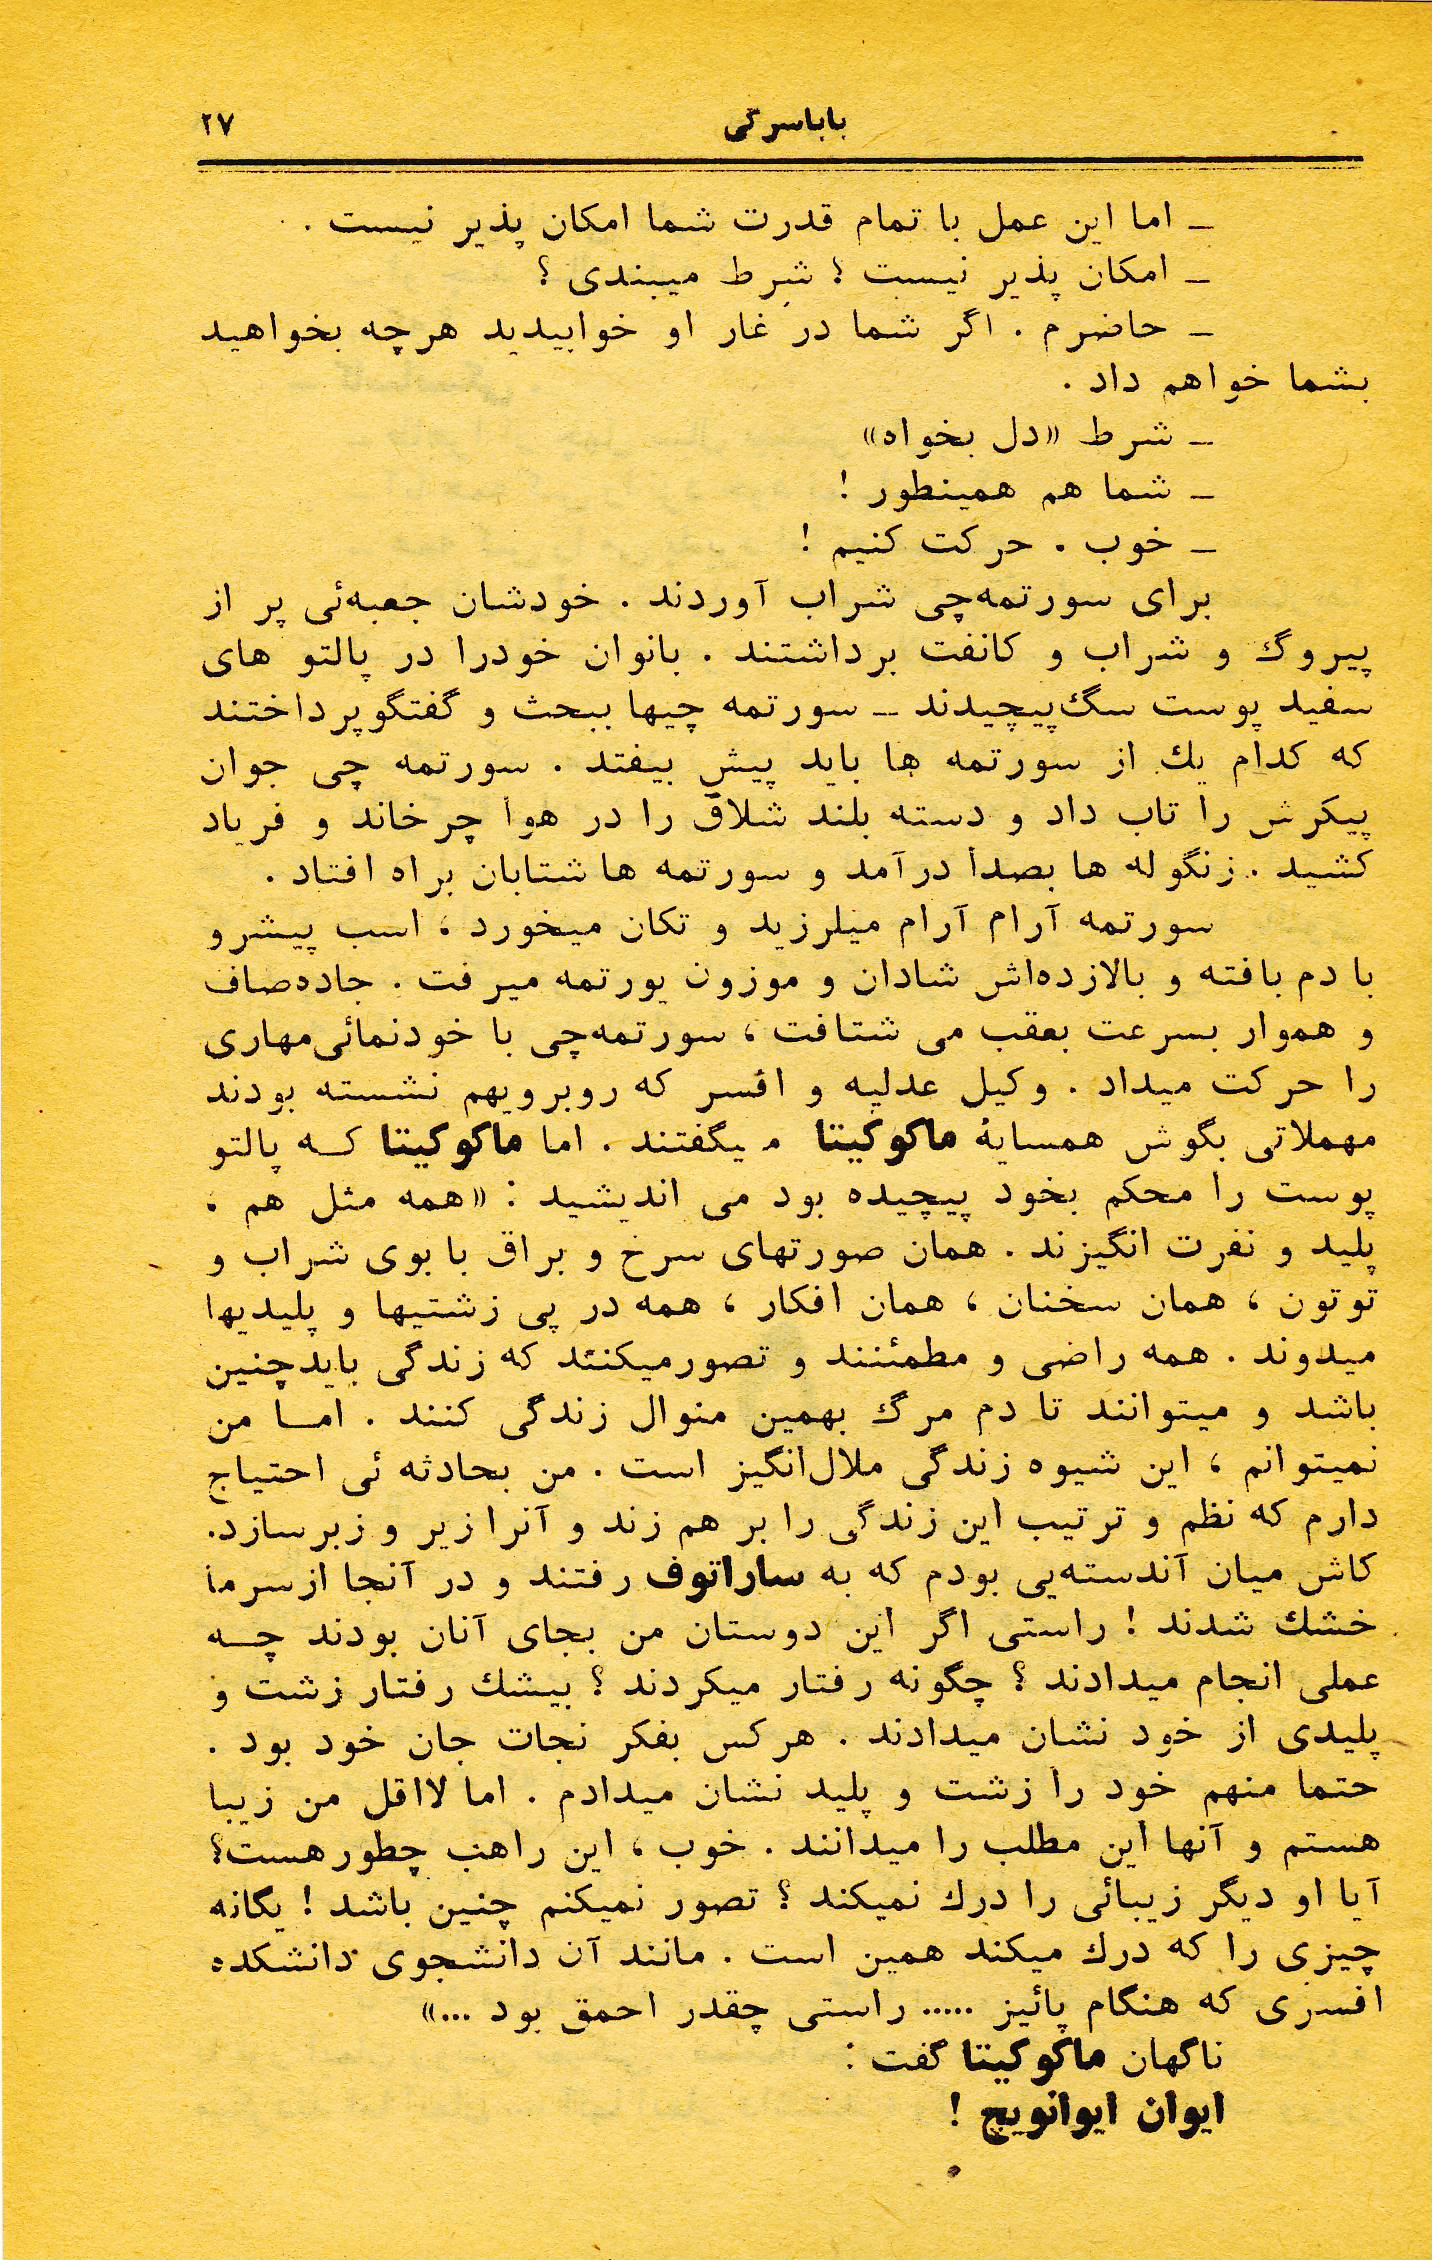 باباسرگی ۲۷
ـ اما این عمل با تمام قدرت شما امکان پذیر نیست .
ـ امکان پذیر نیست ؟ شرط میبندی ؟
ـ حاضرم . اگر شما در غار او خوابیدید هرچه بخواهید
بشما خواهم داد .
ـ شرط «دل بخواه»
ـ شما هم همینطور !
ـ خوب . حرکت کنیم !
برای سورتمه‌چی شراب آوردند . خودشان جعبه‌ئی پر از
پیروگ و شراب و کانفت برداشتند . بانوان خودرا در پالتو های
سفید پوست سگ پیچیدند ـ سورتمه چیها ببحث و گفتگو پرداختند
که کدام یك از سورتمه ها باید پیش بیفتد . سورتمه چی جوان
پیکرش را تاب داد و دسته بلند شلاق را در هوا چرخاند و فریاد
کشید . زنگوله ها بصدا درآمد و سورتمه ها شتابان براه افتاد .
سورتمه آرام آرام میلرزید و تکان میخورد ، اسب پیشرو
با دم بافته و بالازده‌اش شادان و موزون یورتمه میرفت . جاده صاف
و هموار بسرعت بعقب می شتافت ، سورتمه‌چی با خودنمائی مهاری
را حرکت میداد . وکیل عدلیه و افسر که روبرویهم نشسته بودند
مهملاتی بگوش همسایهٔ ماکوکیتا میگفتند . اما ماکوکیتا کـه پالتو
پوست را محکم بخود پیچیده بود می اندیشید : «همه مثل هم ،
پلید و نفرت انگیزند . همان صورتهای سرخ و براق با بوی شراب و
توتون ، همان سخنان ، همان افکار ، همه در پی زشتیها و پلیدیها
میدوند . همه راضی و مطمئنند و تصورمیکنند که زندگی باید چنین
باشد و میتوانند تا دم مرگ بهمین منوال زندگی کنند . امـا من
نمیتوانم ، این شیوه زندگی ملال‌انگیز است . من بحادثه ئی احتیاج
دارم که نظم و ترتیب این زندگی را بر هم زند و آنرا زیر و زبر سازد.
کاش میان آندسته‌یی بودم که به ساراتوف رفتند و در آنجا از سرما
خشك شدند ! راستی اگر این دوستان من بجای آنان بودند چـه
عملی انجام میدادند ؟ چگونه رفتار میکردند ؟ بیشك رفتار زشت و
پلیدی از خود نشان میدادند . هرکس بفکر نجات جان خود بود .
حتما منهم خود را زشت و پلید نشان میدادم . اما لااقل من زیبا
هستم و آنها این مطلب را میدانند . خوب ، این راهب چطور هست؟
آیا او دیگر زیبائی را درك نمیکند ؟ تصور نمیکنم چنین باشد ! یگانه
چیزی را که درك میکند همین است . مانند آن دانشجوی دانشکده
افسری که هنگام پائیز ..... راستی چقدر احمق بود ...»
ناگهان ماکوکیتا گفت :
ایوان ایوانویچ !